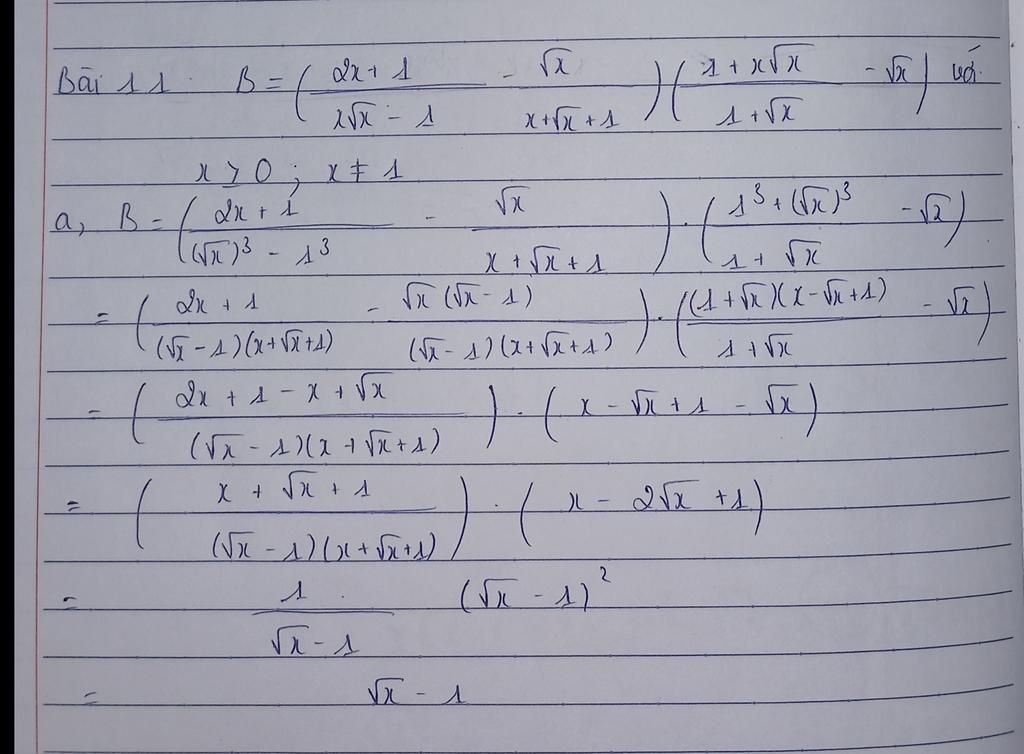 Bài 11. B = ( (2x + 1)/(x√x - 1) - √x/(x+√x+1) ) ( (1 + x√x)/(1+√x) - √x ) với
x ≥ 0 ; x ≠ 1
a, B = ( (2x + 1)/((√x)³ - 1³) - √x/(x + √x + 1) ) . ( (1³ + (√x)³)/(1 + √x) - √x )
= ( (2x + 1)/((√x - 1)(x+√x+1)) - √x(√x - 1)/((√x - 1)(x+√x+1)) ) . ( (1+√x)(x-√x+1)/(1+√x) - √x )
= ( (2x + 1 - x + √x)/((√x - 1)(x+√x+1)) ) . ( x - √x + 1 - √x )
= ( (x + √x + 1)/((√x - 1)(x+√x+1)) ) . ( x - 2√x + 1 )
= 1/(√x - 1) . (√x - 1)²
= √x - 1